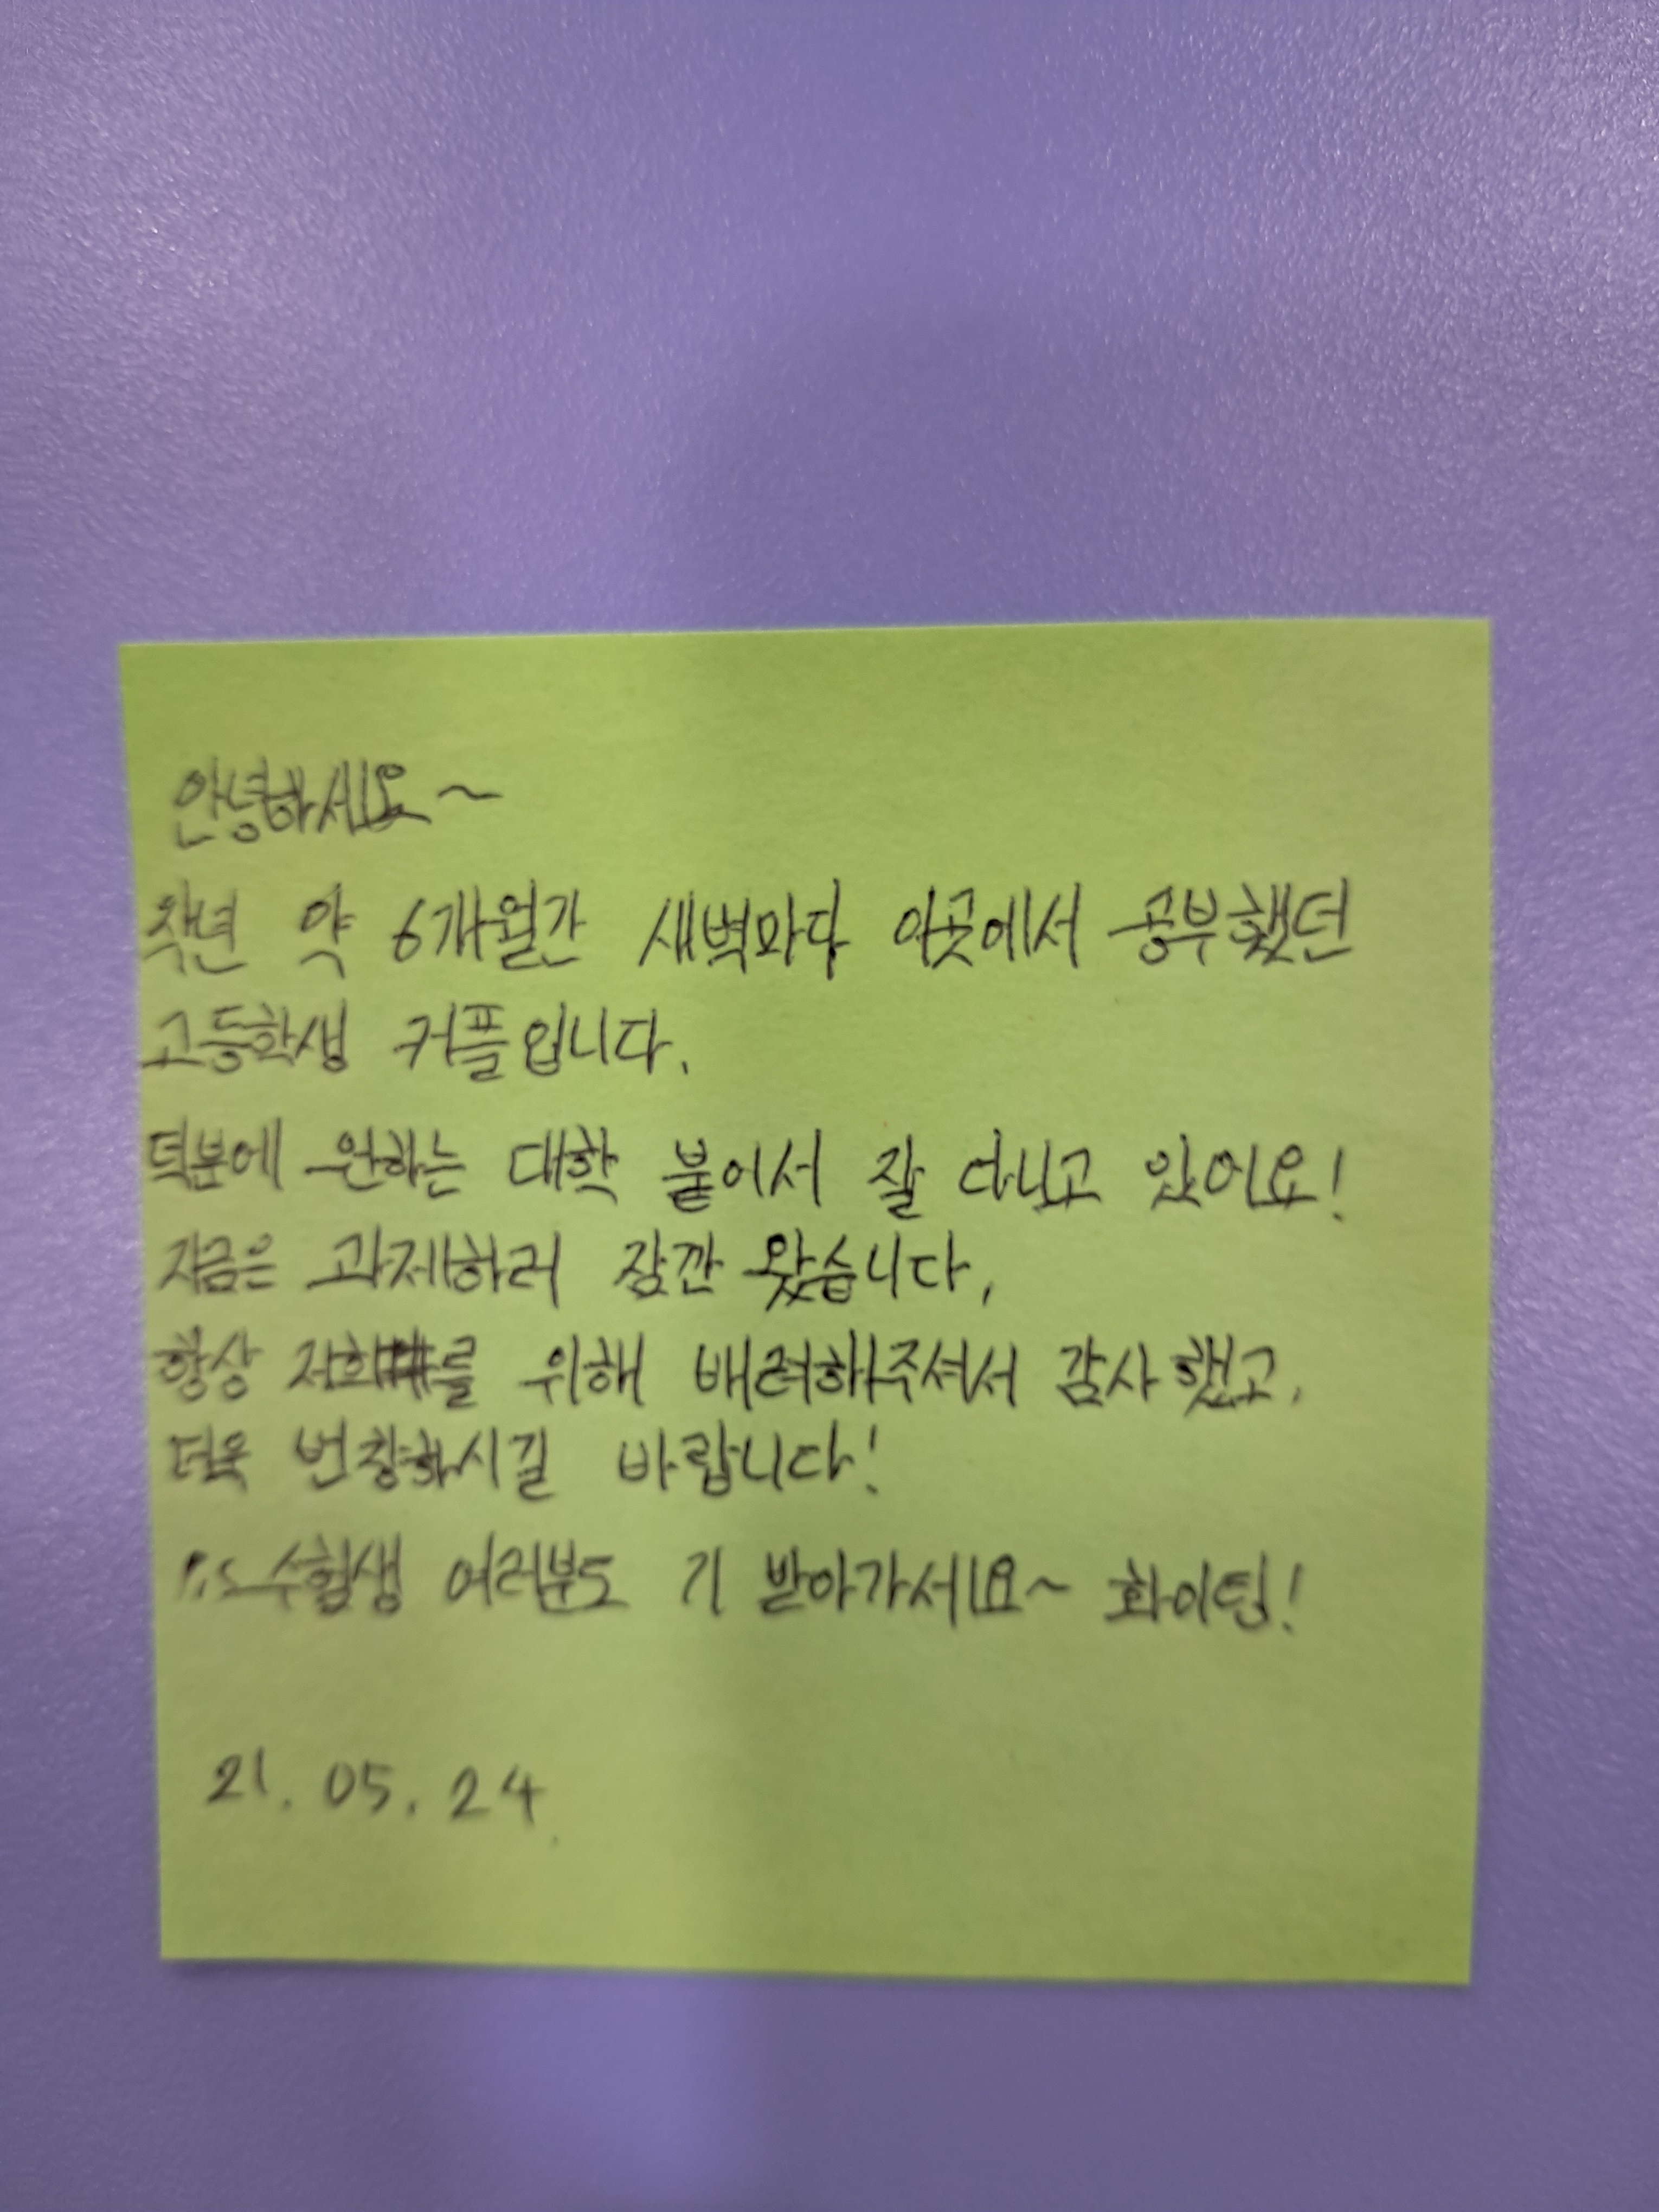 안녕하세요~
작년 약 6개월간 새벽마다 이곳에서 공부했던
고등학생 커플입니다.
덕분에 원하는 대학 붙어서 잘 다니고 있어요!
지금은 과제하러 잠깐 왔습니다,
항상 저희를 위해 배려해주셔서 감사했고,
더욱 번창하시길 바랍니다!
P.S 수험생 여러분도 기 받아가세요~ 화이팅!
21. 05. 24.